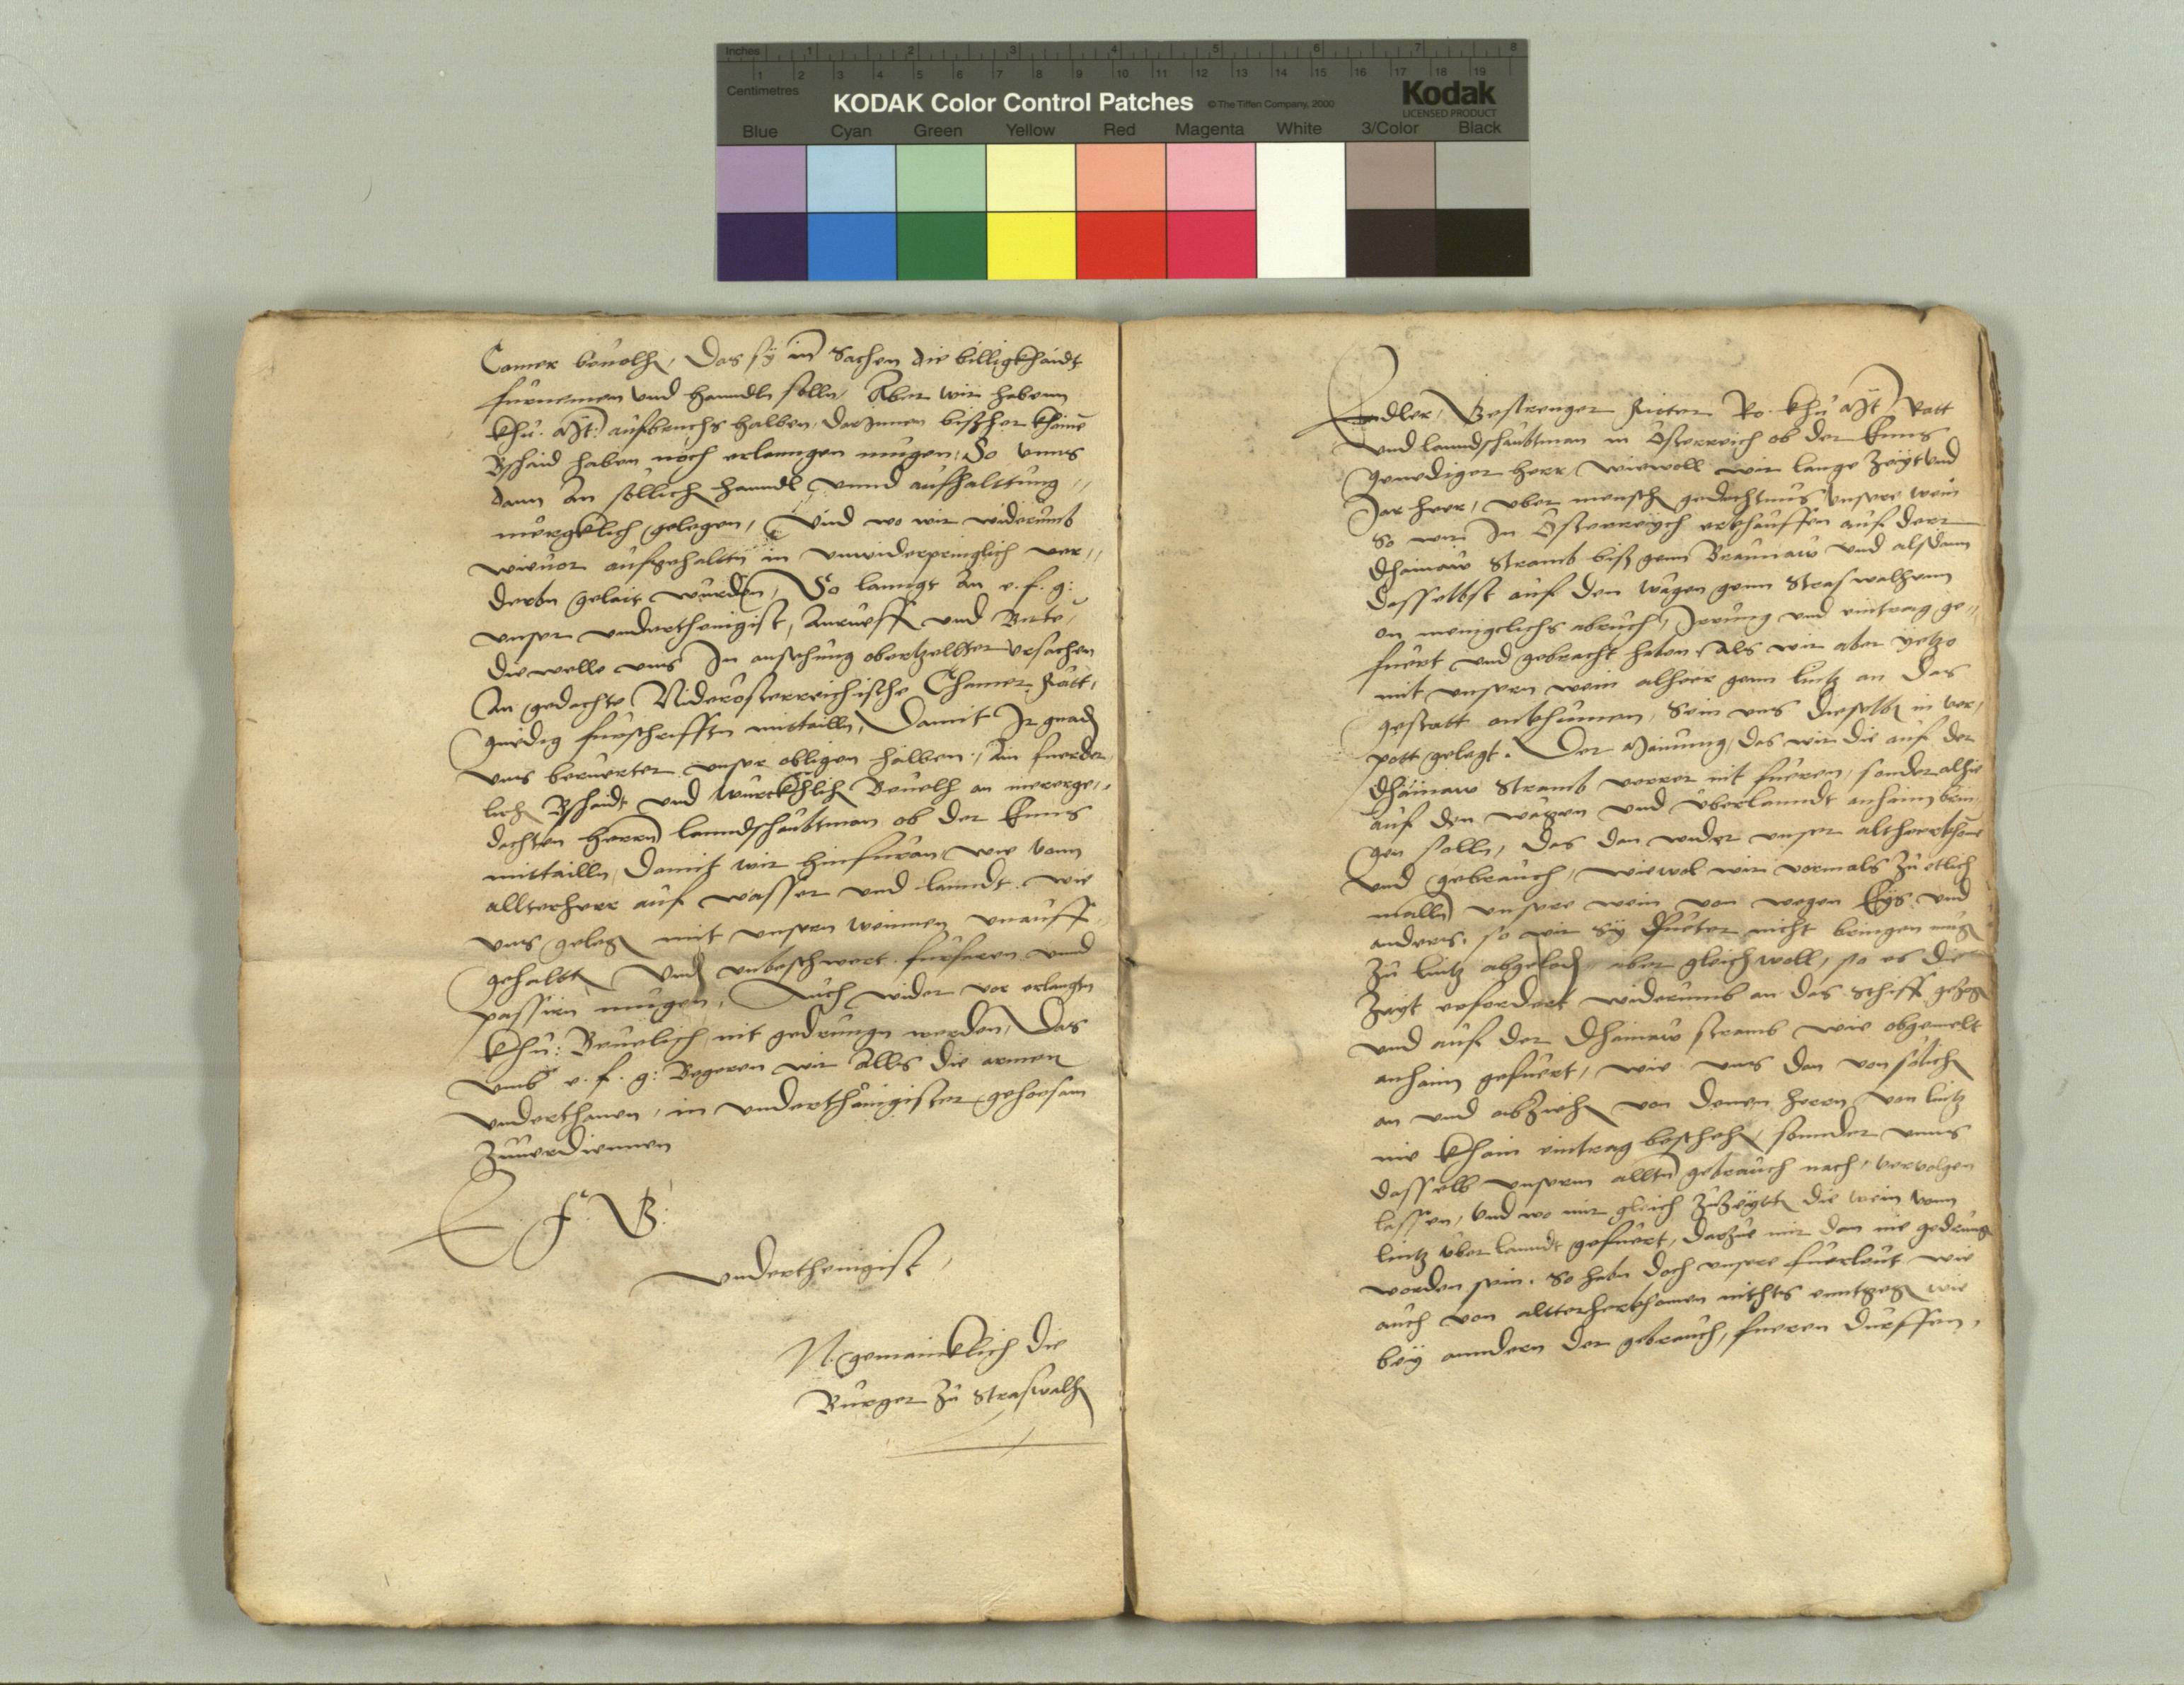 Inches 1 2 3 4 5 6 7 8
1 2 3 4 5 6 7 8 9 10 11 12 13 14 15 16 17 18 19
Centimetres
KODAK Color Control Patches © The Tiffen Company, 2000 Kodak
LICENSED PRODUCT
Blue Cyan Green Yellow Red Magenta White 3/Color Black
Camer beuolh, Das sy in Sachen die billigkhaidt
furnemen vnd hanndln solln, Aber wir habenn
khu. Mt: aufbruchs halben, darJnnen bißher khaine
Bschaid haben noch erlanngen mugen. So vnns
dann an sollich hanndl vnnd aufhalttung
mergklich gelegen, Vnd wo wir widerumb
wieuor aufgehaltn in vnwiderpringlich ver,,
derbn gelait wurden, So lanngt an e. f. g:
vnser vnderthenigist, Anrueff vnd Bitte,
die welle vnns In ansehung obertzellter vrsachen
An gedachte Niderösterreichische Chamer Rätt,
gnedig furschrifften mittailln, Damit Jr gnad
vns beruerter vnser obligen halben, Ain fuerder,
lich Bschaidt vnd wurckhlich Beuelh an merge,,
dachten herrn lanndshaubtman ob der Enns
mittailln, damit wir hinfuran wie vonn
allterherr auf wasser vnd lanndt wie
vns geleg mit vnsern weinnen vnauff,,
gehaltn vnd vnbeschwert furfaren vnd
passirn mugen, Auch wider vor erlangtn
khu: Beuelich nit gedrungn werden, Das
vmb e. f. g: Begeren wir Alls die armen
vnderthanen, in vnderthänigister gehorsam
Zuuerdiennen
E. F. G:
vnderthenigist,
N. gemaincklich die
Burger zu Straswalh
Edler, Gestrenger Ritter Ro. khu. Mt Ratt
vnd lanndshaubtman in Österreich ob der Enns
Genediger herr, wiewoll wir lange Zeyt vnd
Jar heer, vber mensch gedachtnus vnsere wein
so wir In Österreych erkhauffen auf der
Dhainaw Stramb biß genn Braunaw vnd alsdann
dasselbst auf den wagen genn Straswalhenn
on menigclichs abruch, Jrrung vnd eintrag ge,,
fuert vnd gebracht haben, Als wir aber yetzo
mit vnsern wein alheer genn lintz an das
gestatt ankhumen, Sein vns dieselb in ver,
pott gelegt. Der Mainung, das wir die auf der
Dhainaw Stramb verrer nit fueren, sonder alhie
auf den wagen vnd vberlanndt anhaim brin,
gen solln, das dan wider vnser altherkhome
vnd gebrauch, wiewol wir vormals zu etlich
malln vnsere wein von wegen Eys vnd
anders, so wir sy verrer nicht bringen mug
zu lintz abgelad, aber gleichwoll, so es die
Zeyt erfordert widerumb an das schiff gezog
vnd auf der Dhainaw stramb wie obgemelt
anhaim gefuert, wie vns dan von solich
an vnd abziehn von denen herrn von lintz
nie khain eintrag beschehn, sonnder vnns
dasselb vnserm alltn gebrauch nach, vervolgen
lassen, Vnd wo wir gleich zuzeytn die wein vonn
lintz vber lanndt gefuert, darzue wir dan nie gedrung
worden sein. So habn doch vnsere fuerleut wie
auch von altterherkhomen nichts enntgeg wie
bey anndern der gebrauch, fueren durffen,